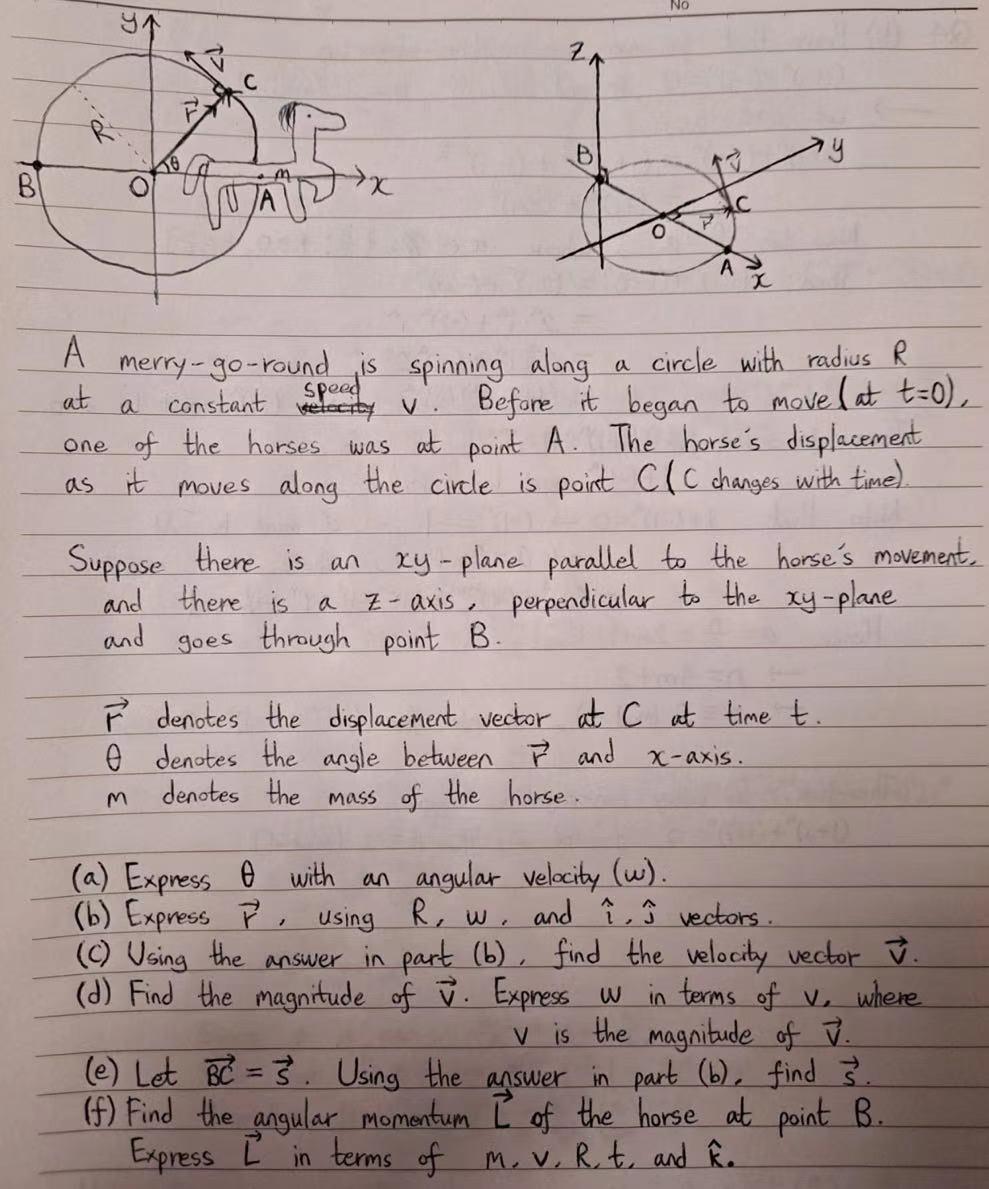 No
y
v⃗
C
r⃗
R
θ
B
O
m
A
x
z
y
B
v⃗
C
O
r⃗
A
x
A merry-go-round is spinning along a circle with radius R
at a constant velocity speed v. Before it began to move (at t=0),
one of the horses was at point A. The horse's displacement
as it moves along the circle is point C (C changes with time).
Suppose there is an xy-plane parallel to the horse's movement.
and there is a z-axis, perpendicular to the xy-plane
and goes through point B.
r⃗ denotes the displacement vector at C at time t.
θ denotes the angle between r⃗ and x-axis.
m denotes the mass of the horse.
(a) Express θ with an angular velocity (w).
(b) Express r⃗, using R, w, and î, ĵ vectors.
(c) Using the answer in part (b), find the velocity vector v⃗.
(d) Find the magnitude of v⃗. Express w in terms of v, where
v is the magnitude of v⃗.
(e) Let BC⃗ = s⃗. Using the answer in part (b), find s⃗.
(f) Find the angular momentum L⃗ of the horse at point B.
Express L⃗ in terms of m, v, R, t, and k̂.